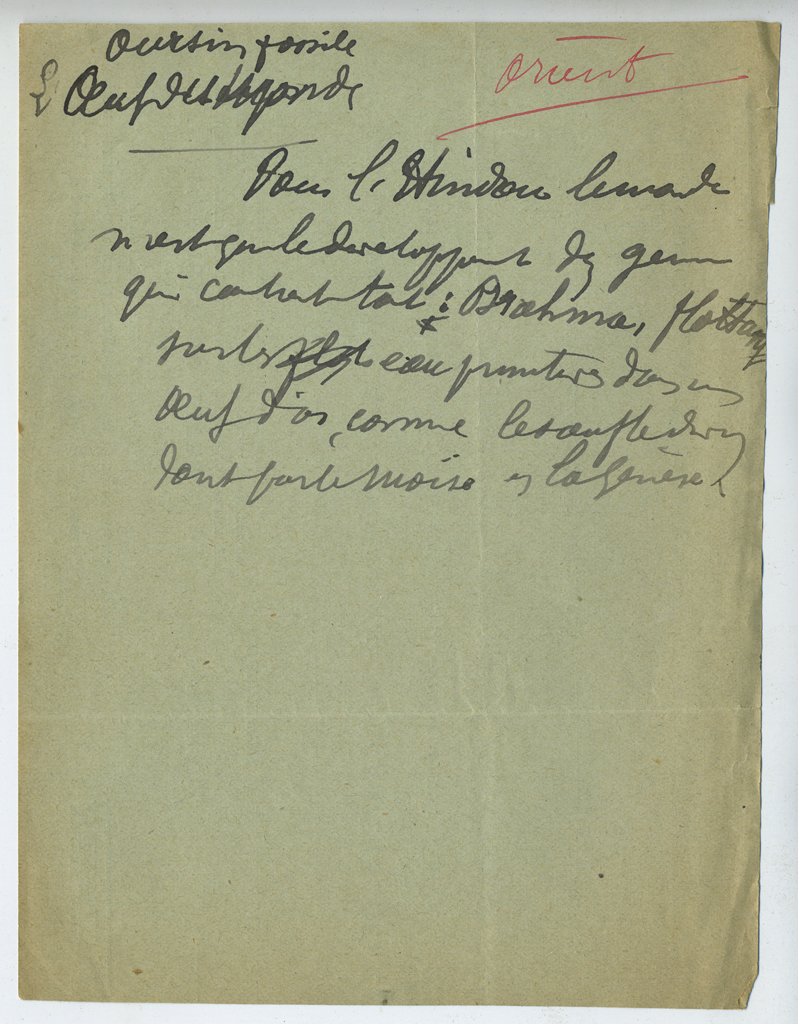 Oursin fossile
Orient
L' Œuf du Monde
Pour l'Hindou le monde
n'est que le developpement du germe
qui contient tout : Brahma, flottant
sur les eaux primitives dans un
Œuf d'or, comme le souffle divin
dont parle Moïse en la Genèse.